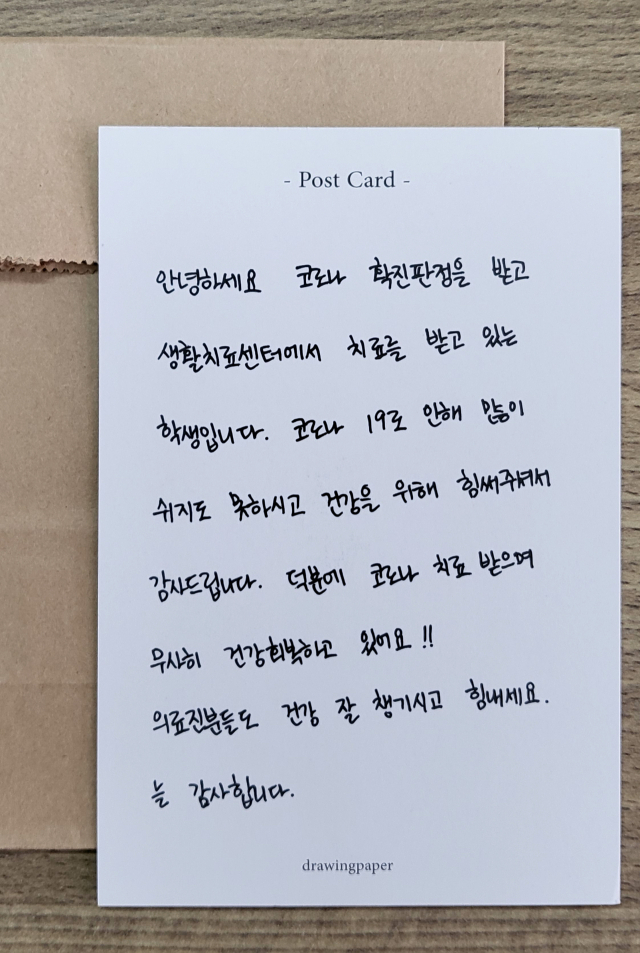 - Post Card -
안녕하세요 코로나 확진판정을 받고
생활치료센터에서 치료를 받고 있는
학생입니다. 코로나 19로 인해 많이
쉬지도 못하시고 건강을 위해 힘써주셔서
감사드립니다. 덕분에 코로나 치료 받으며
무사히 건강회복하고 있어요!!
의료진분들도 건강 잘 챙기시고 힘내세요.
늘 감사합니다.
drawingpaper